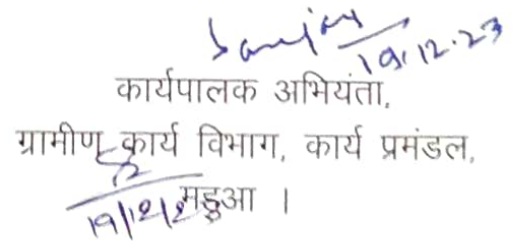 Sanjay
19.12.23
कार्यपालक अभियंता,
ग्रामीण कार्य विभाग, कार्य प्रमंडल,
महुआ ।
19/12/2